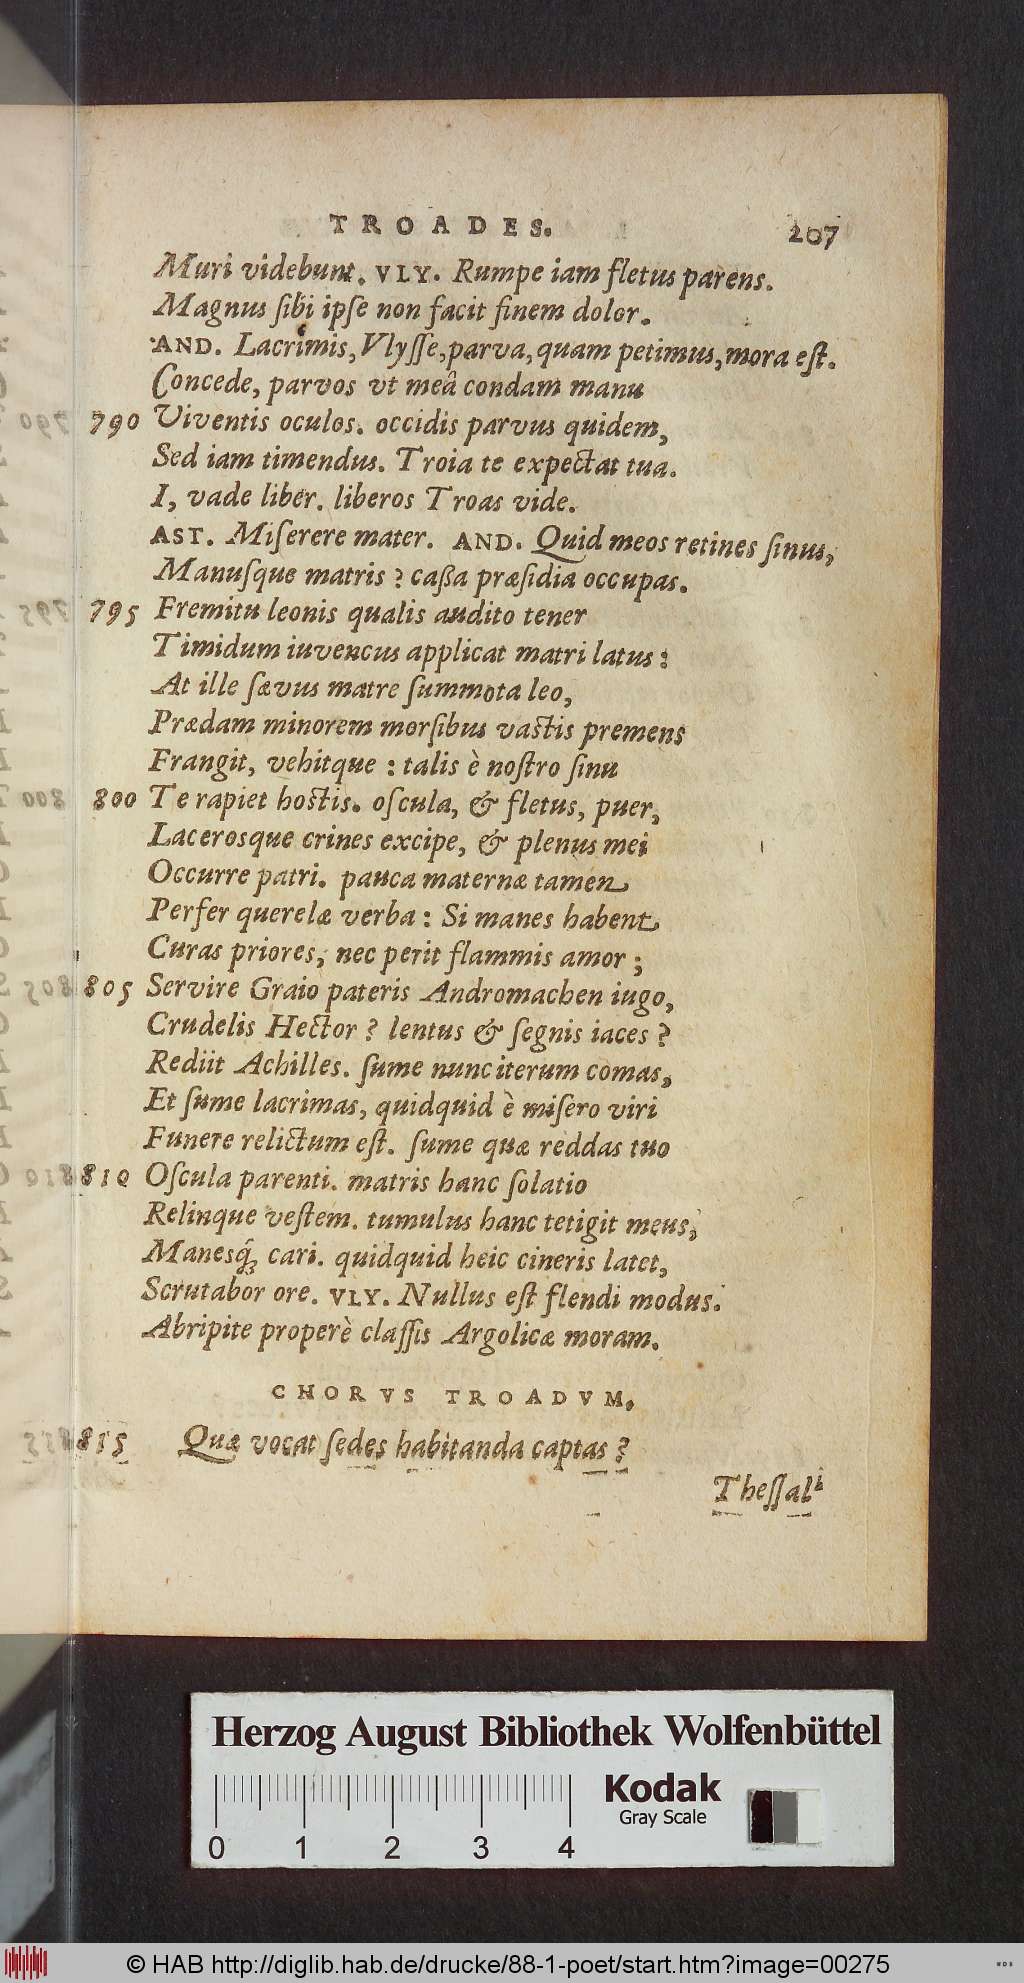 TROADES. 207
Muri videbunt. VLY. Rumpe iam fletus parens.
Magnus ſibi ipſe non facit finem dolor.
AND. Lacrimis, Vlyſſe, parva, quam petimus, mora eſt.
Concede, parvos vt meâ condam manu
790 Viventis oculos. occidis parvus quidem,
Sed iam timendus. Troia te expectat tua.
I, vade liber. liberos Troas vide.
AST. Miſerere mater. AND. Quid meos retines ſinus,
Manuſque matris? caßa præſidia occupas.
795 Fremitu leonis qualis audito tener
Timidum iuvencus applicat matri latus:
At ille ſævus matre ſummota leo,
Prædam minorem morſibus vastis premens
Frangit, vehitque: talis è noſtro ſinu
800 Te rapiet hostis. oſcula, & fletus, puer,
Laceroſque crines excipe, & plenus mei
Occurre patri. pauca maternæ tamen
Perfer querelæ verba: Si manes habent
Curas priores, nec perit flammis amor;
805 Servire Graio pateris Andromachen iugo,
Crudelis Hector? lentus & ſegnis iaces?
Rediit Achilles. ſume nunc iterum comas,
Et ſume lacrimas, quidquid è miſero viri
Funere relictum eſt. ſume quæ reddas tuo
810 Oſcula parenti. matris hanc ſolatio
Relinque veſtem. tumulus hanc tetigit meus,
Manesq́; cari. quidquid heic cineris latet,
Scrutabor ore. VLY. Nullus eſt flendi modus.
Abripite properè claſſis Argolicæ moram.
CHORVS TROADVM.
815 Quæ vocat ſedes habitanda captas?
Theſſali
Herzog August Bibliothek Wolfenbüttel
Kodak
Gray Scale
0 1 2 3 4
© HAB http://diglib.hab.de/drucke/88-1-poet/start.htm?image=00275